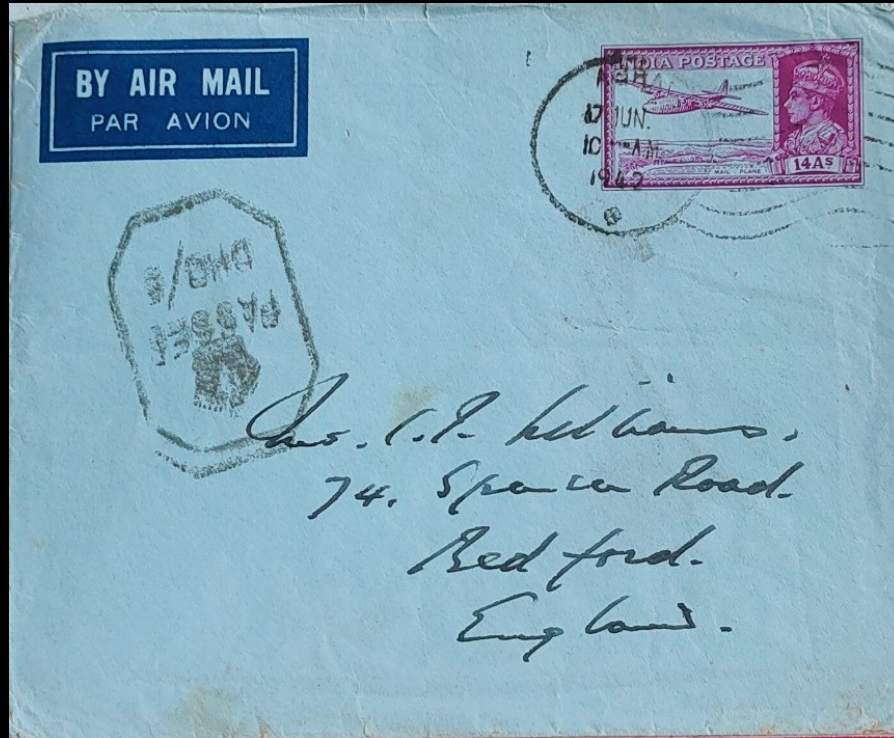 BY AIR MAIL
PAR AVION
INDIA POSTAGE
MAIL PLANE
14 AS
17 JUN.
10 AM
1942
DHO/
PASSED
Mrs. C. P. Williams.
74. Spencer Road.
Bedford.
England.